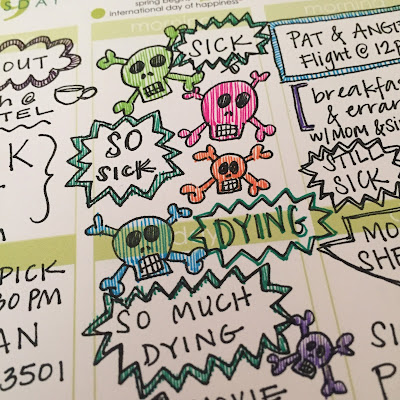 SDAY
spring beg
international day of happiness
morning
OUT
@
TEL
K
}
PICK
30 PM
AN
3501
SICK
SO
SICK
DYING
day
SO MUCH
DYING
PAT & ANGE
Flight @ 12P
breakfas
& erran
w/Mom & Sis
STILL
SICK
MO
SHE
SI
P